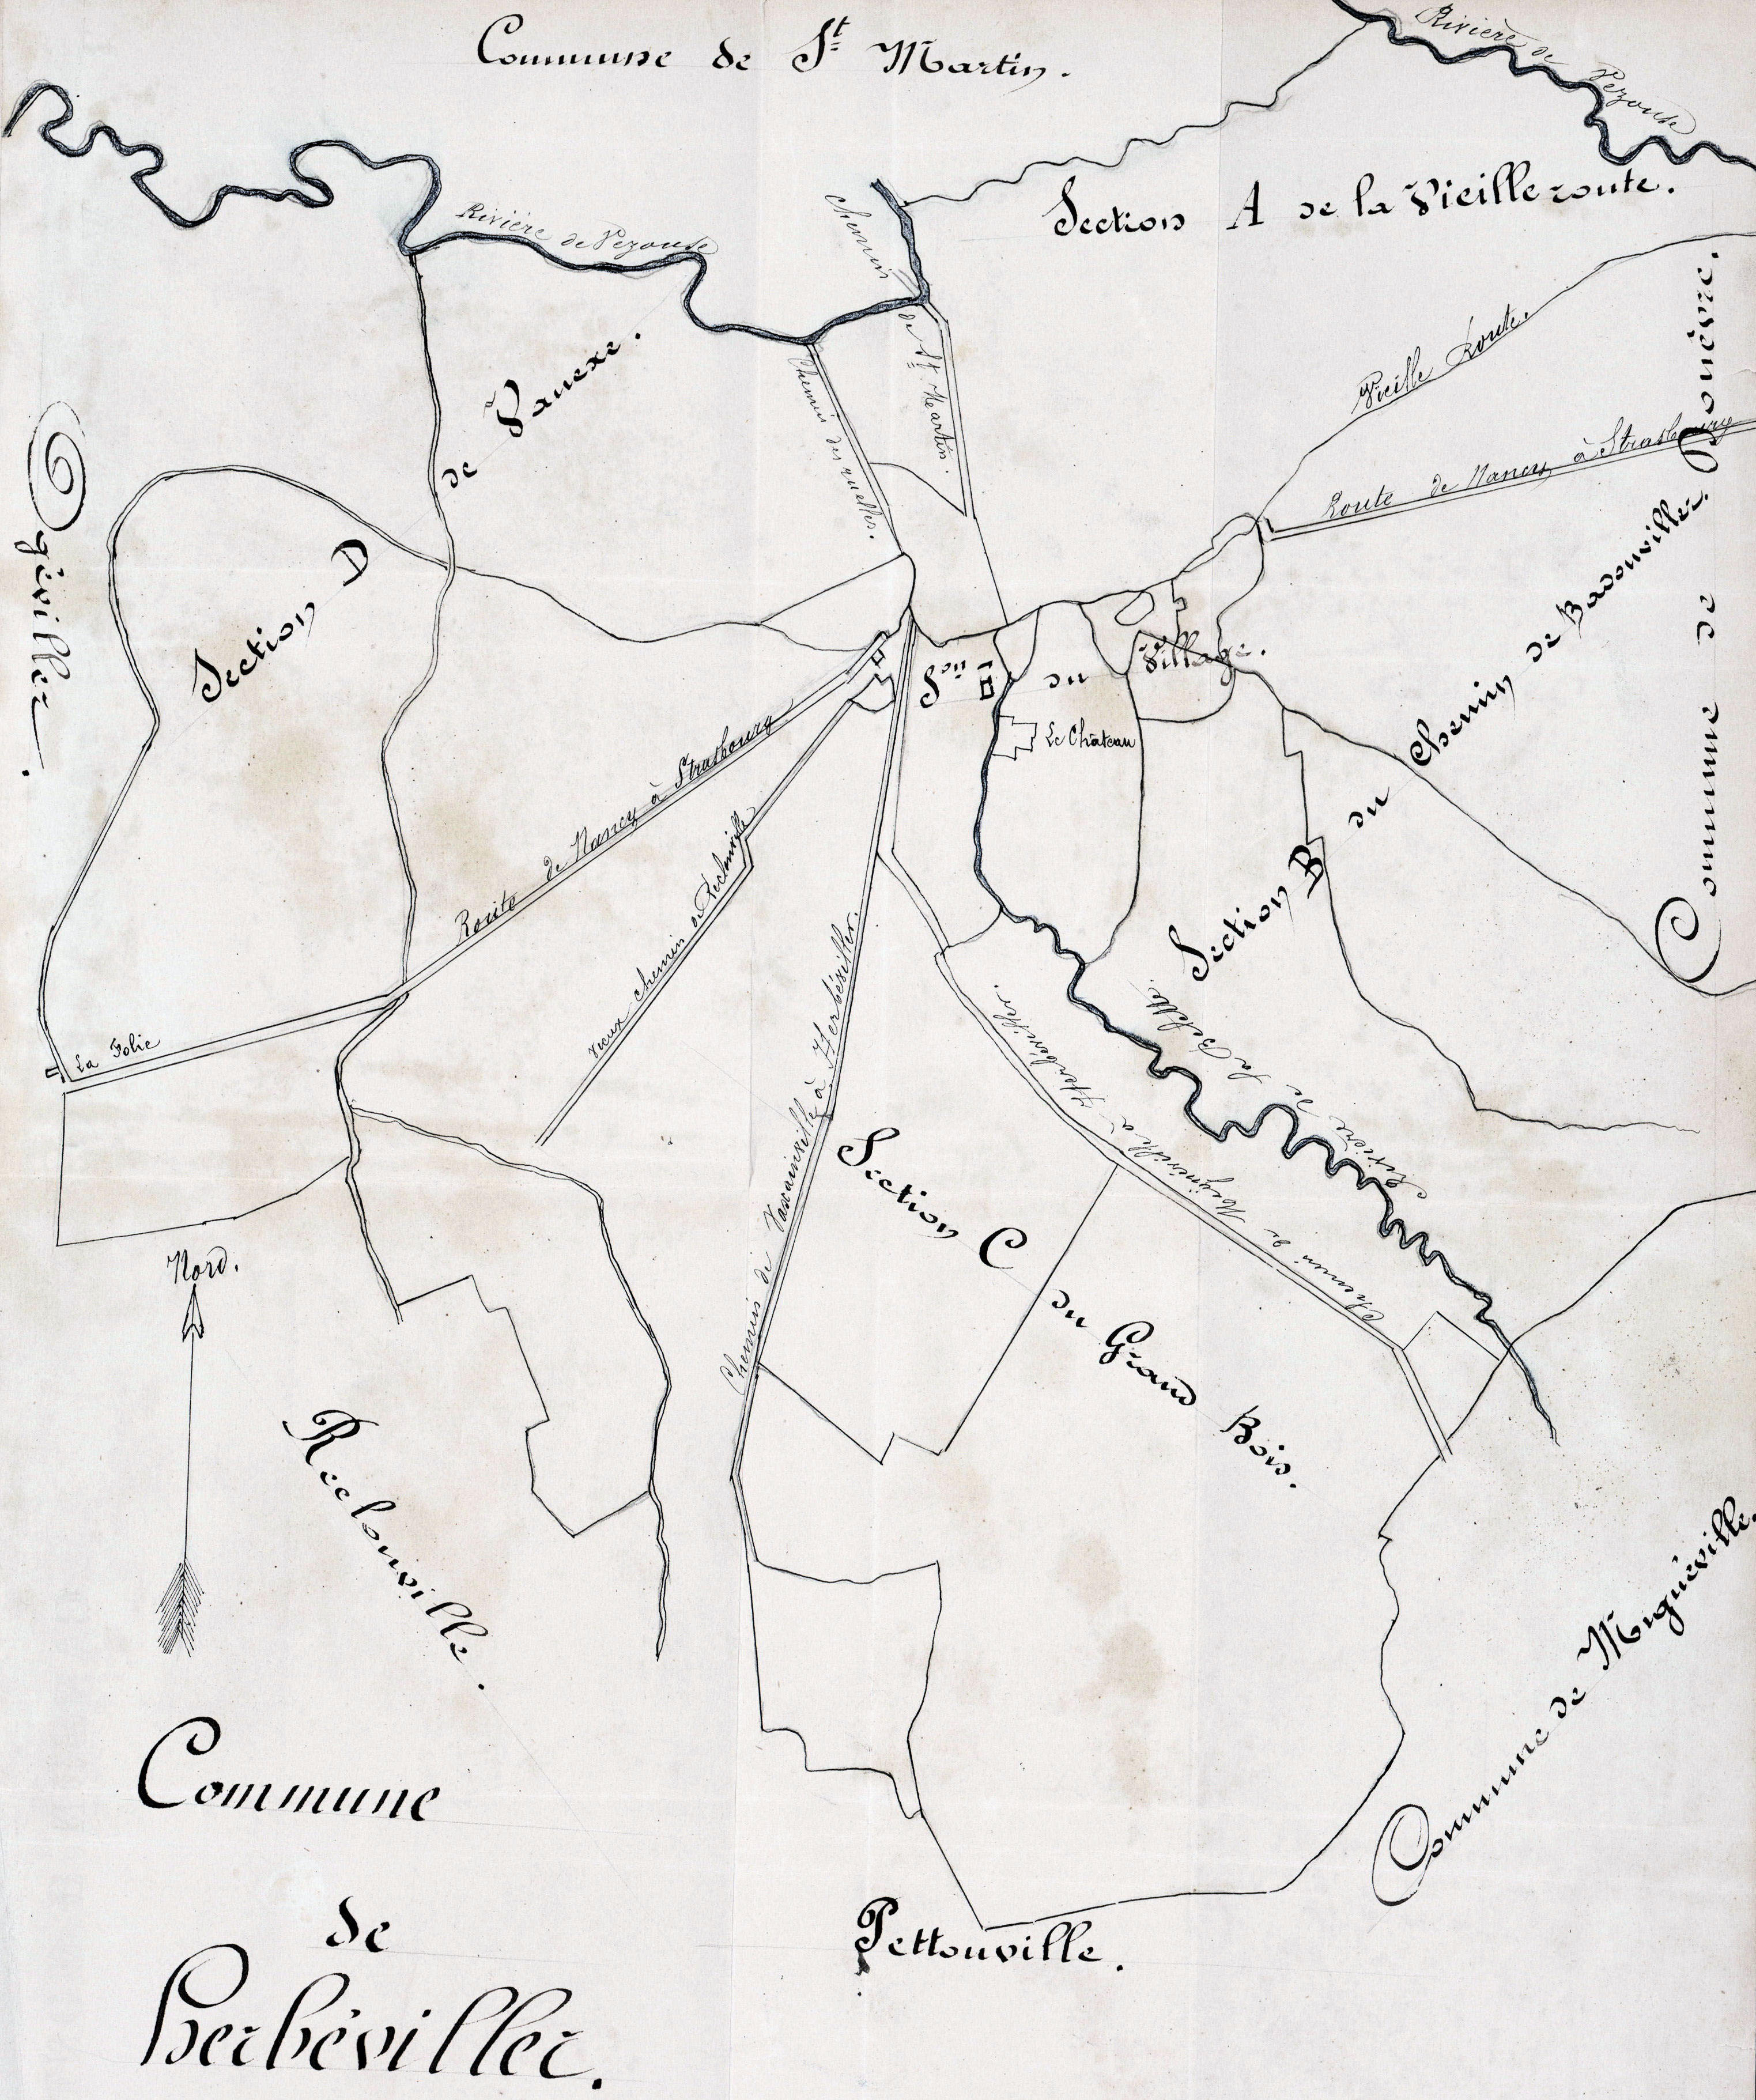 Commune de St Martin.
Rivière de Vezouse
Section A de la Vieille route.
Chemin de St Martin.
Rivière de Vezouse
Vieille Route.
Route de Nancy à Strasbourg
Commune de Domèvre.
Chemin des ruelles.
Section D de Vanexe.
Ogéviller.
Son du Village.
Le Château
Section B du Chemin de Badonviller.
Route de Nancy à Strasbourg
Vieux chemin de Reclonville
La Folie
Chemin de Vaxainville à Herbéviller.
Rivière de la Blette.
Chemin de Mignéville à Herbéviller.
Section C du Grand Bois.
Nord.
Reclonville.
Commune de Mignéville.
Commune
de
Herbéviller.
Pettonville.